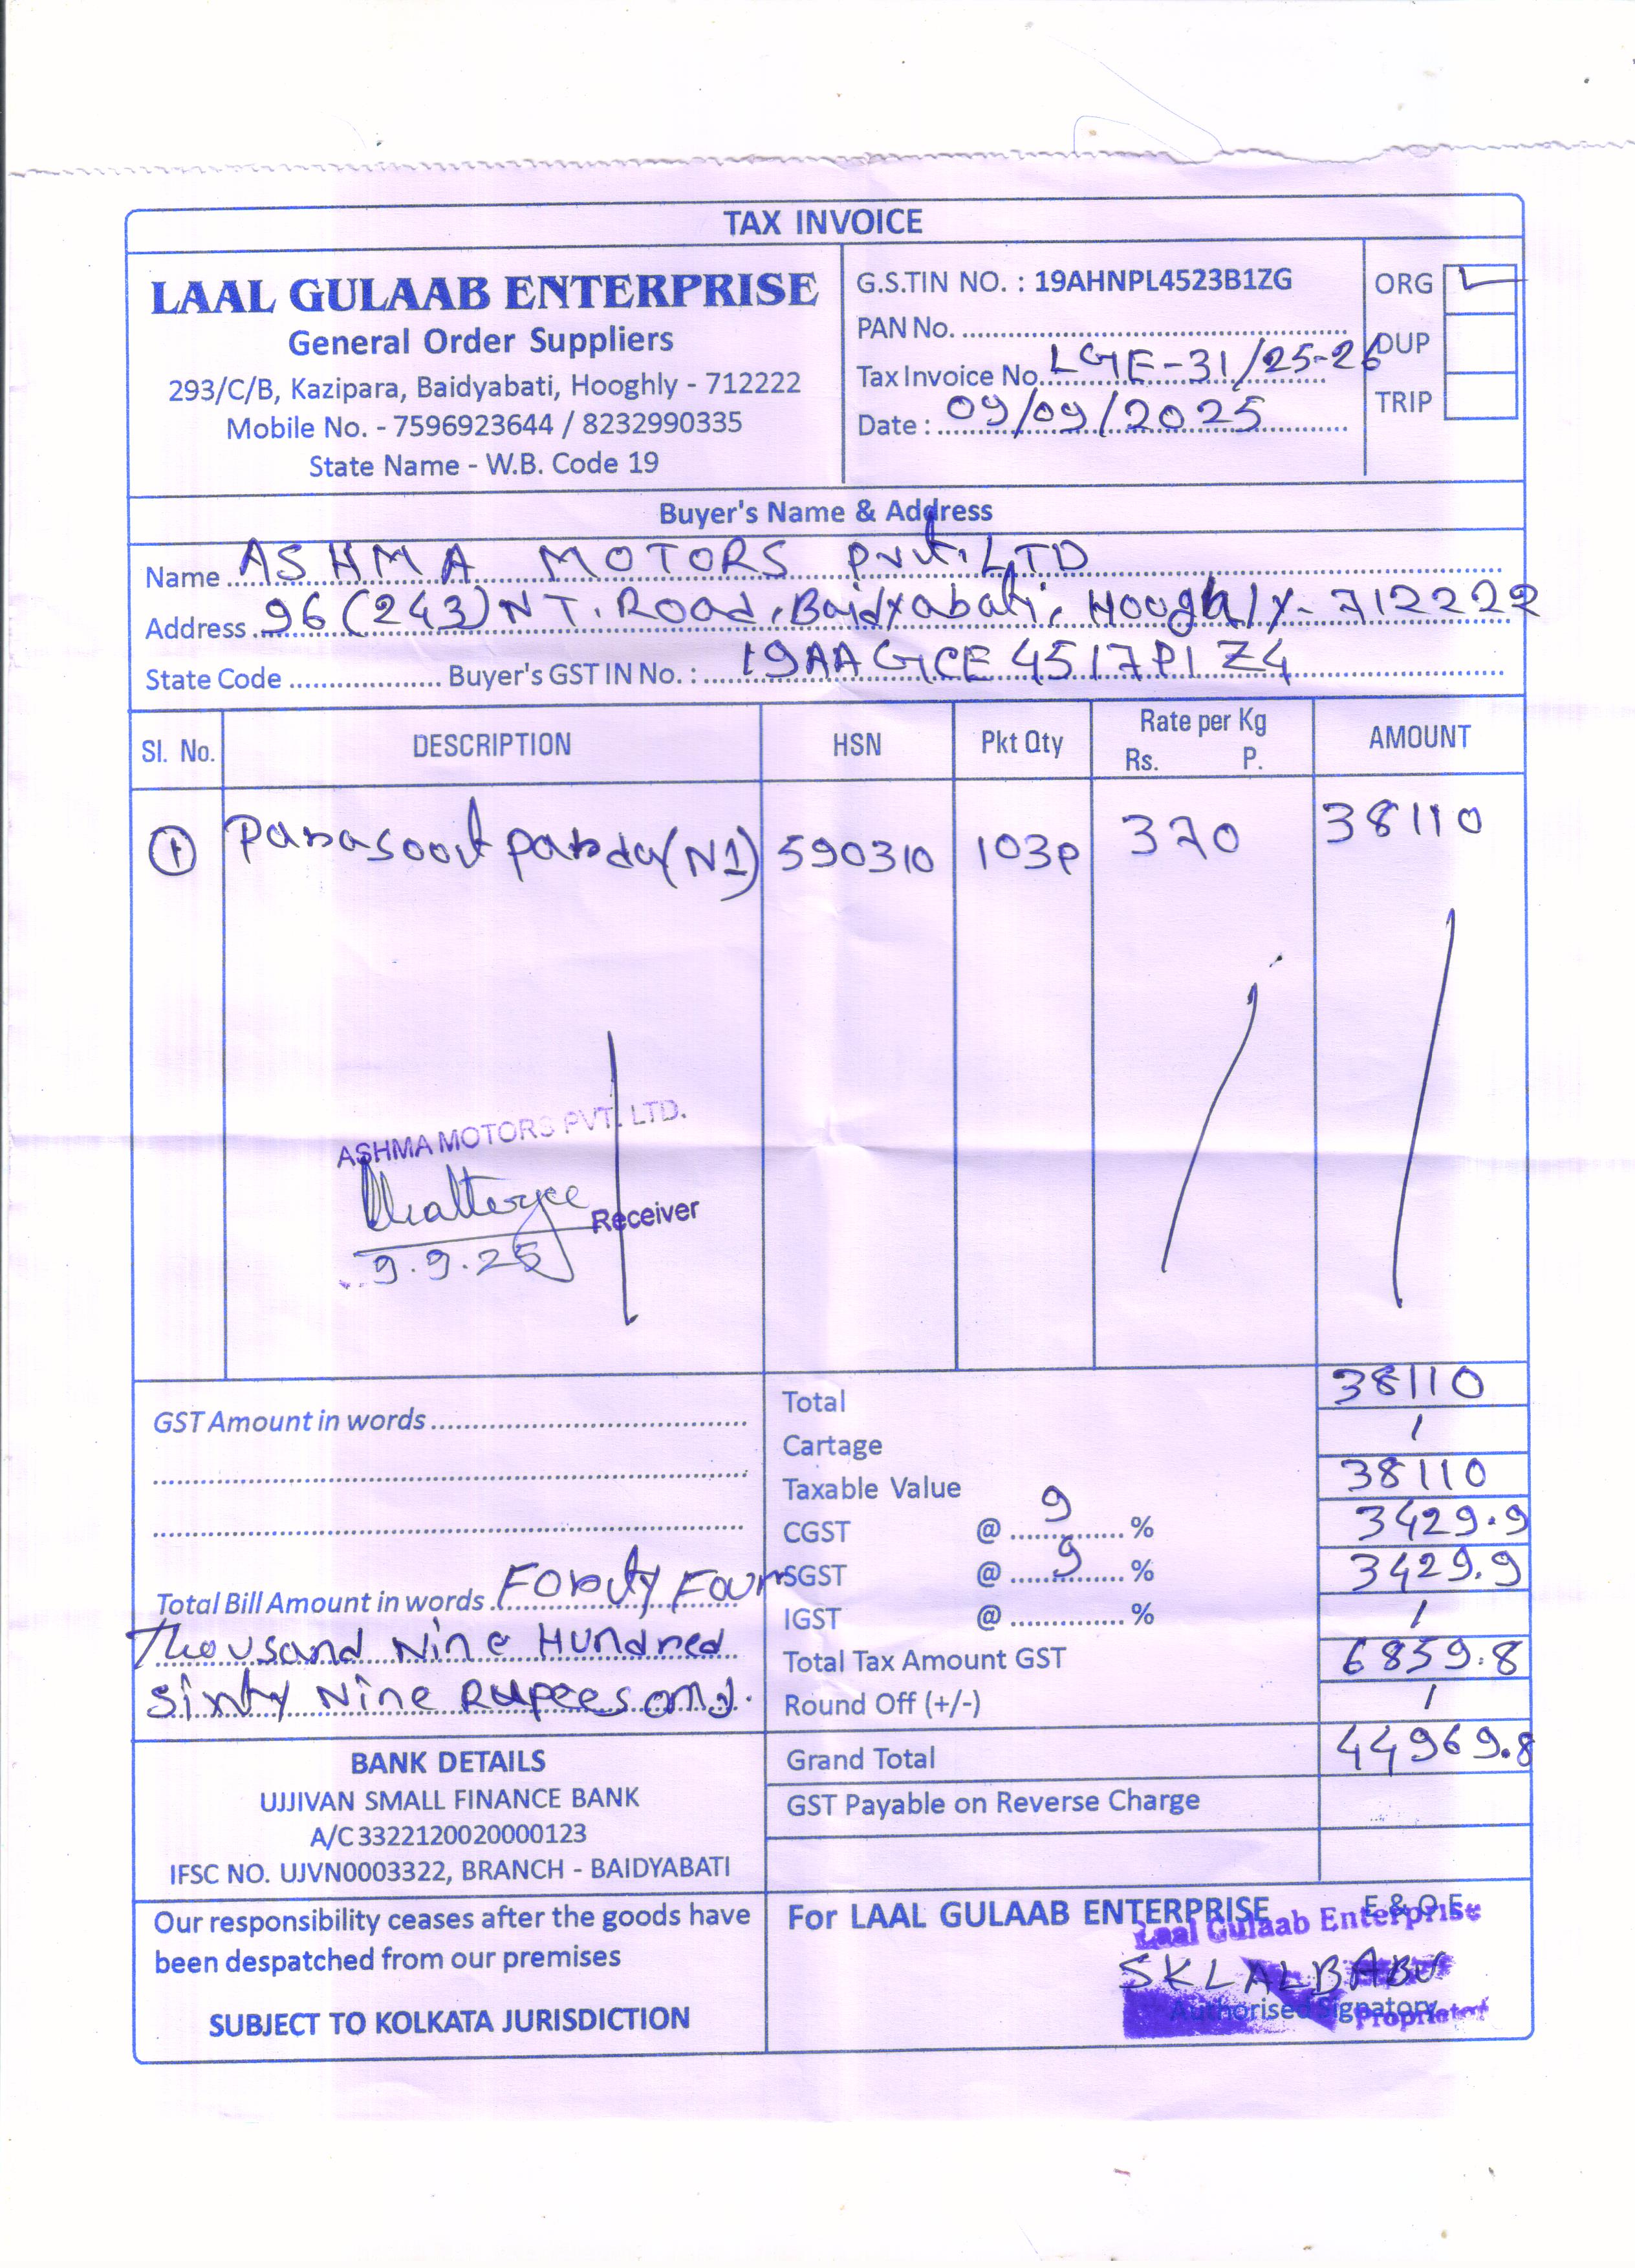 TAX INVOICE
LAAL GULAAB ENTERPRISE
General Order Suppliers
293/C/B, Kazipara, Baidyabati, Hooghly - 712222
Mobile No. - 7596923644 / 8232990335
State Name - W.B. Code 19
G.S.TIN NO. : 19AHNPL4523B1ZG
PAN No.
Tax Invoice No. LGE-31/25-26
Date : 09/09/2025
ORG
DUP
TRIP
Buyer's Name & Address
Name ASHMA MOTORS Pvt. LTD
Address 96(243) N T. Road, Baidyabati, Hooghly-712222
State Code Buyer's GST IN No. : 19AAGCE4517P1Z4
Sl. No. DESCRIPTION HSN Pkt Qty Rate per Kg Rs. P. AMOUNT
1 Parasoot parda (N1) 590310 103p 370 38110
ASHMA MOTORS PVT. LTD.
Chatterjee Receiver
9.9.25
GST Amount in words
Total Bill Amount in words Forty Four
Thousand Nine Hundred
Sixty Nine Rupees only.
Total 38110
Cartage /
Taxable Value 38110
CGST @ 9 % 3429.9
SGST @ 9 % 3429.9
IGST @ % /
Total Tax Amount GST 6859.8
Round Off (+/-) /
Grand Total 44969.8
GST Payable on Reverse Charge
BANK DETAILS
UJJIVAN SMALL FINANCE BANK
A/C 3322120020000123
IFSC NO. UJVN0003322, BRANCH - BAIDYABATI
Our responsibility ceases after the goods have
been despatched from our premises
SUBJECT TO KOLKATA JURISDICTION
For LAAL GULAAB ENTERPRISE E & O.E.
Laal Gulaab Enterprise
SK LALBABU
Authorised Signatory
Proprietor